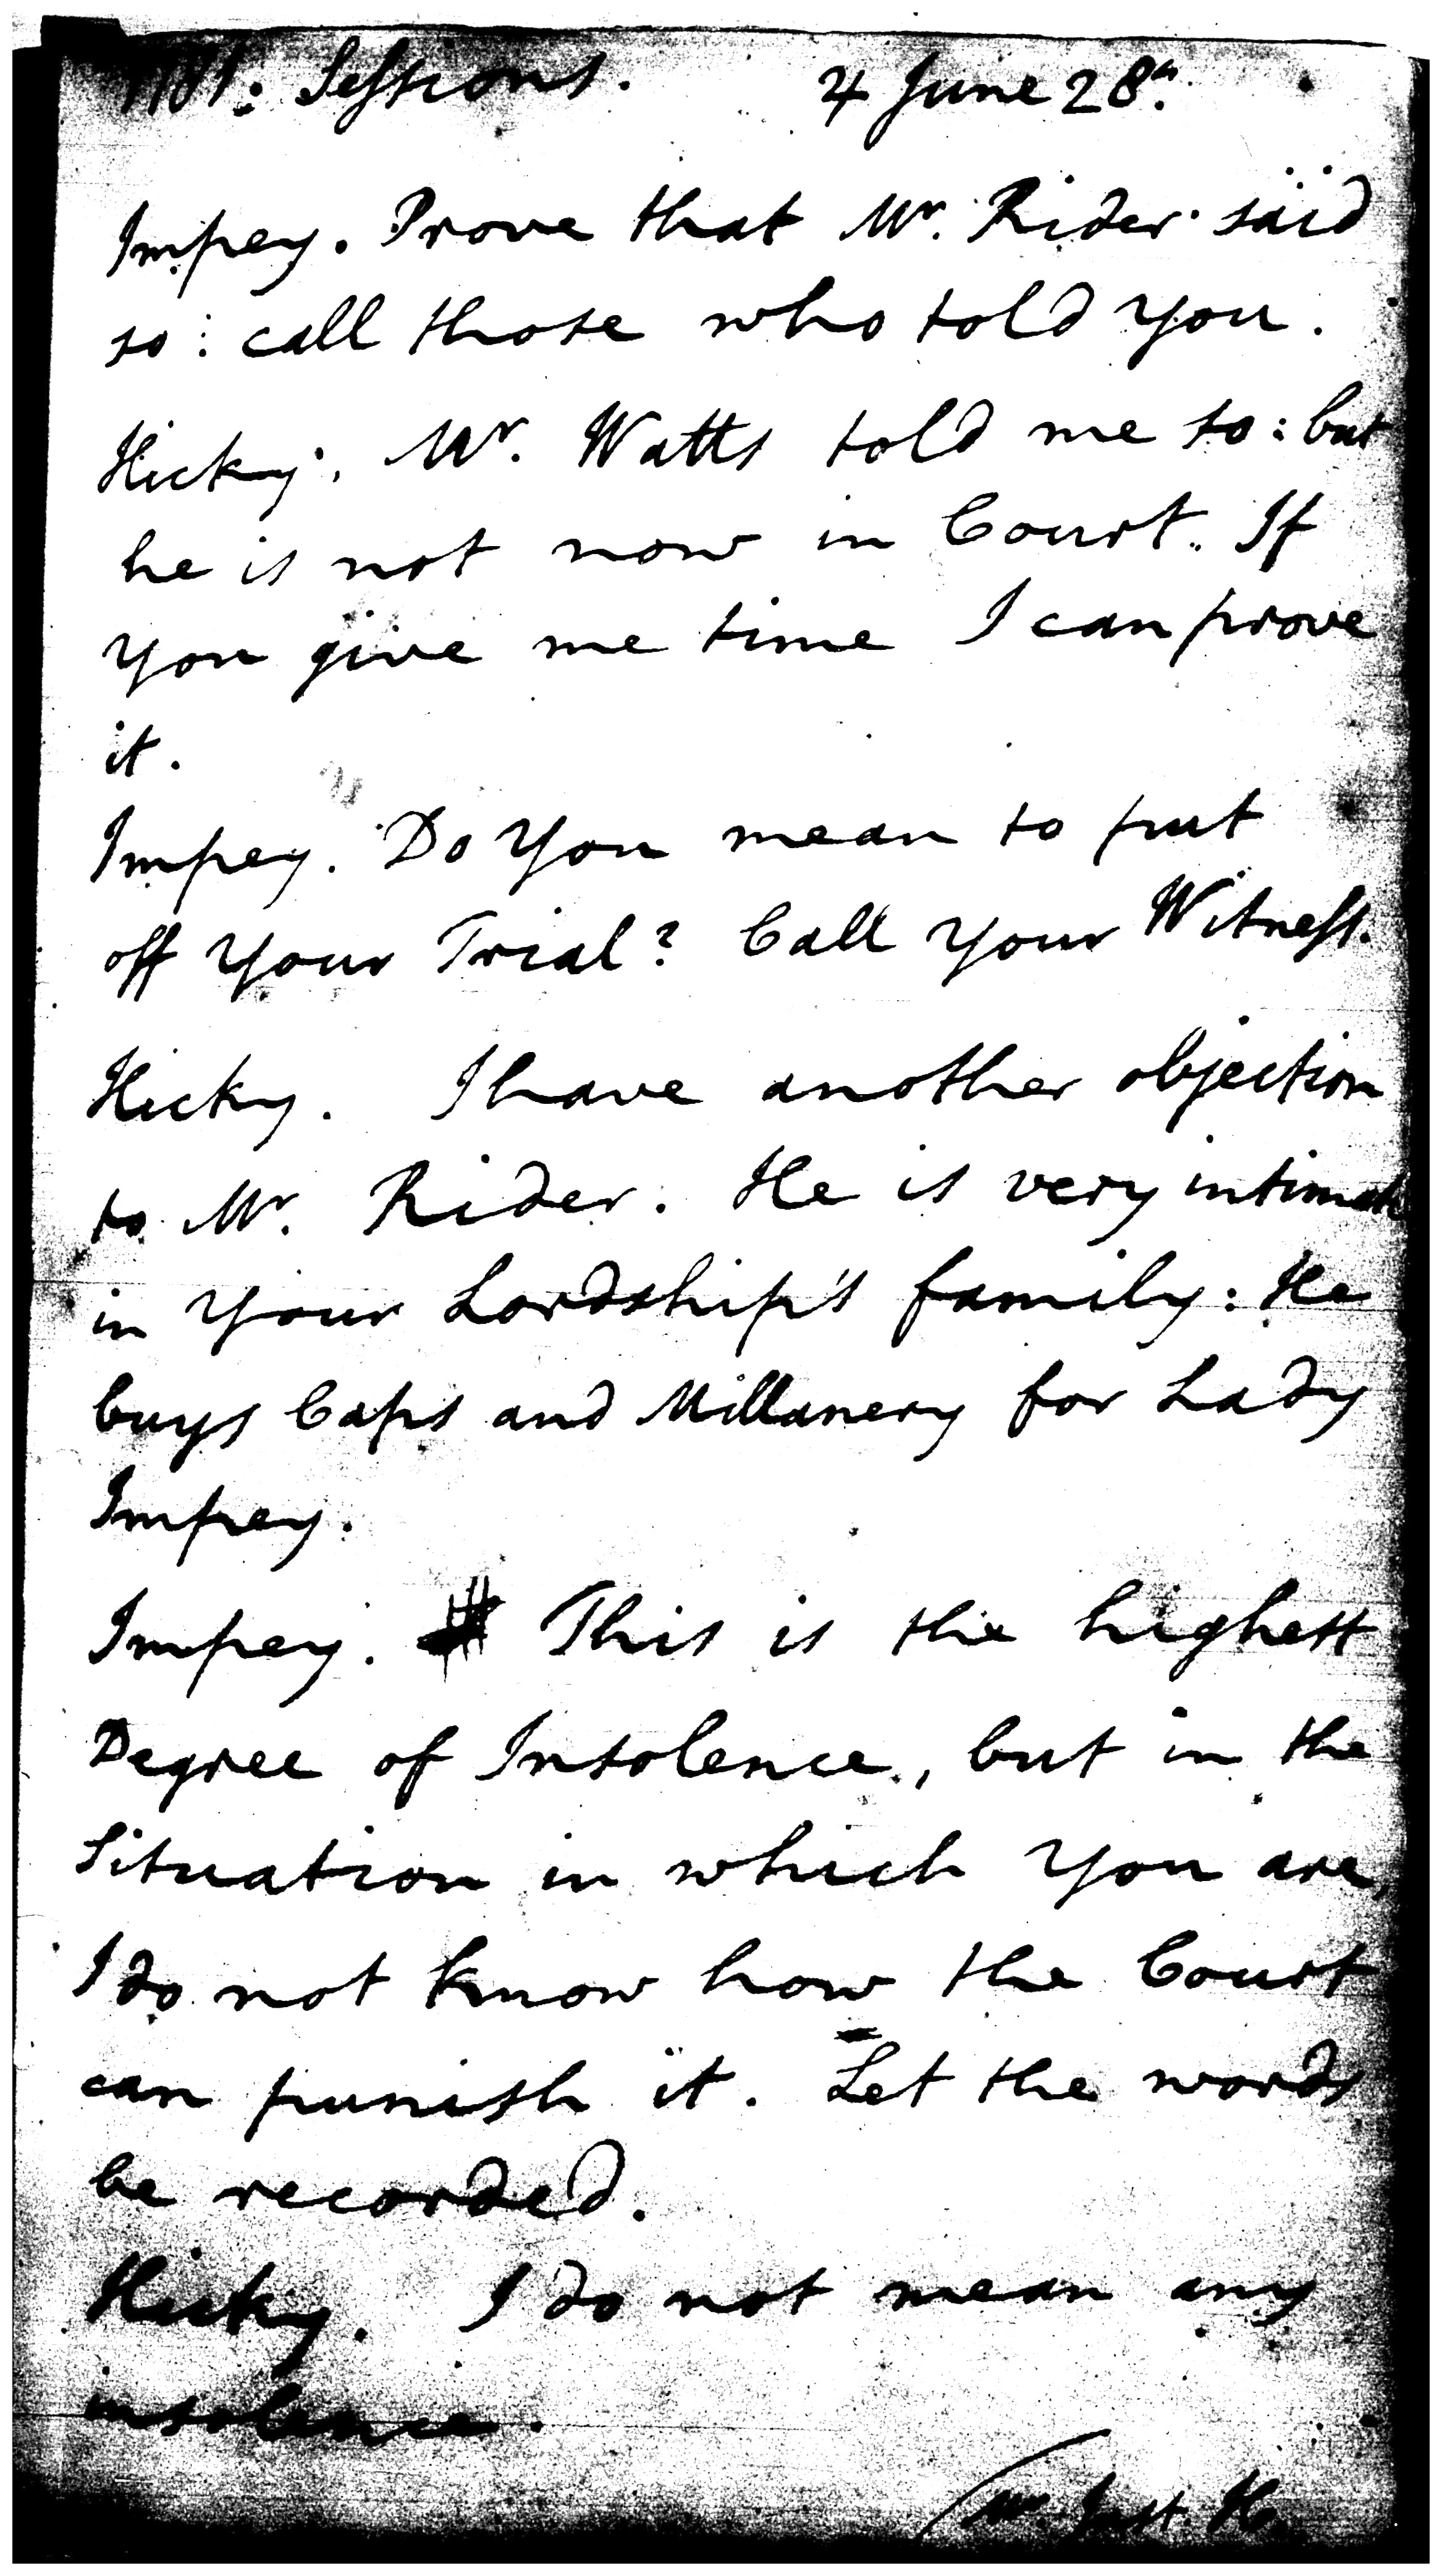 1781: Sessions. 4 June 28th.
Impey. Prove that Mr. Rider said
so: call those who told you.
Hicky. Mr. Watts told me so: but
he is not now in Court. If
you give me time I can prove
it.
Impey. Do You mean to put
off Your Trial? Call your Witness.
Hicky. I have another objection
to Mr. Rider. He is very intimate
in Your Lordship's family: He
buys Caps and Millanery for Lady
Impey.
Impey. This is the highest
Degree of Insolence, but in the
Situation in which You are,
I do not know how the Court
can punish it. Let the words
be recorded.
Hicky. I do not mean any
insolence.
Mr. Just. H.